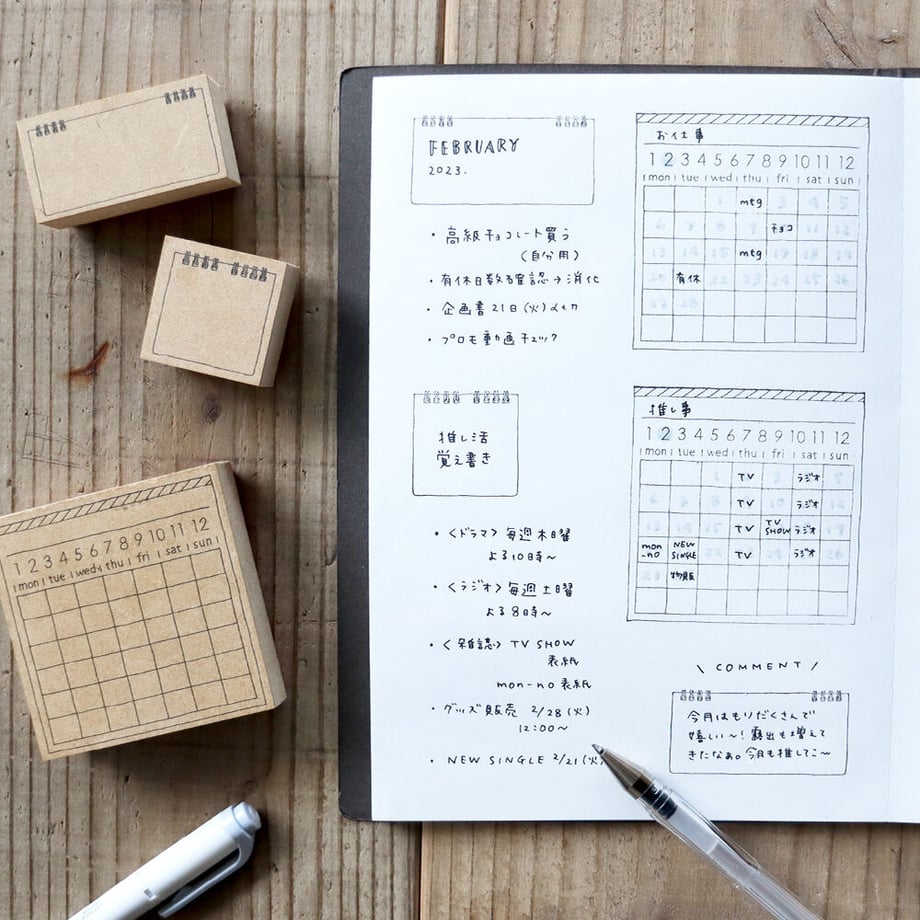 FEBRUARY
2023.
・高級チョコレート買う
(自分用)
・有休日数を確認→消化
・企画書21日(火)〆切
・プロモ動画チェック
推し活
覚え書き
・〈ドラマ〉毎週木曜
よる10時〜
・〈ラジオ〉毎週土曜
よる8時〜
・〈雑誌〉TV SHOW
表紙
mon-no 表紙
・グッズ販売 2/28(火)
12:00〜
・NEW SINGLE 2/21(火)
お仕事
1 2 3 4 5 6 7 8 9 10 11 12
mon tue wed thu fri sat sun
1 mtg 3 4 5
6 7 8 9 チョコ 11 12
13 14 15 mtg 17 18 19
20 有休 22 23 24 25 26
27 28
推し事
1 2 3 4 5 6 7 8 9 10 11 12
mon tue wed thu fri sat sun
1 TV 3 ラジオ 5
6 7 8 TV 10 ラジオ 12
13 14 15 TV TV SHOW ラジオ 19
mon-no NEW SINGLE 22 TV 24 ラジオ 26
27 物販
\ COMMENT /
今月はもりだくさんで
嬉しい〜!露出も増えて
きたなぁ。今月も推してこ〜
1 2 3 4 5 6 7 8 9 10 11 12
mon tue wed thu fri sat sun